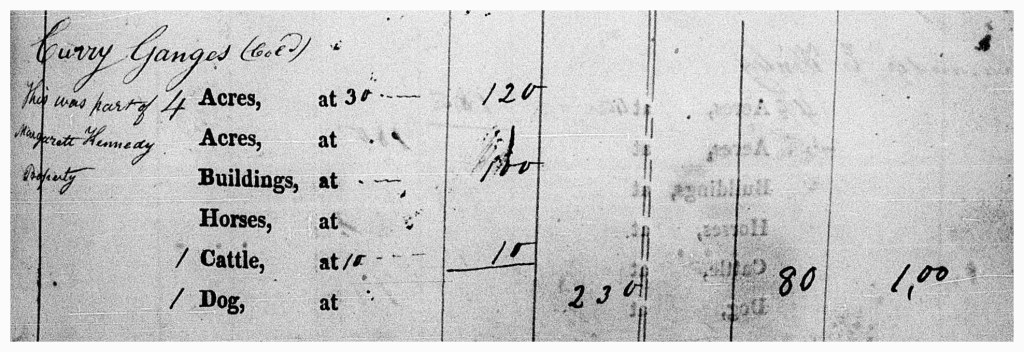 Curry Ganges (Cold)
This was part of 4 Acres, at 30 120
Margarett Kennedy Acres, at
Property Buildings, at 100
Horses, at
1 Cattle, at 10 10
1 Dog, at 230 80 1,00